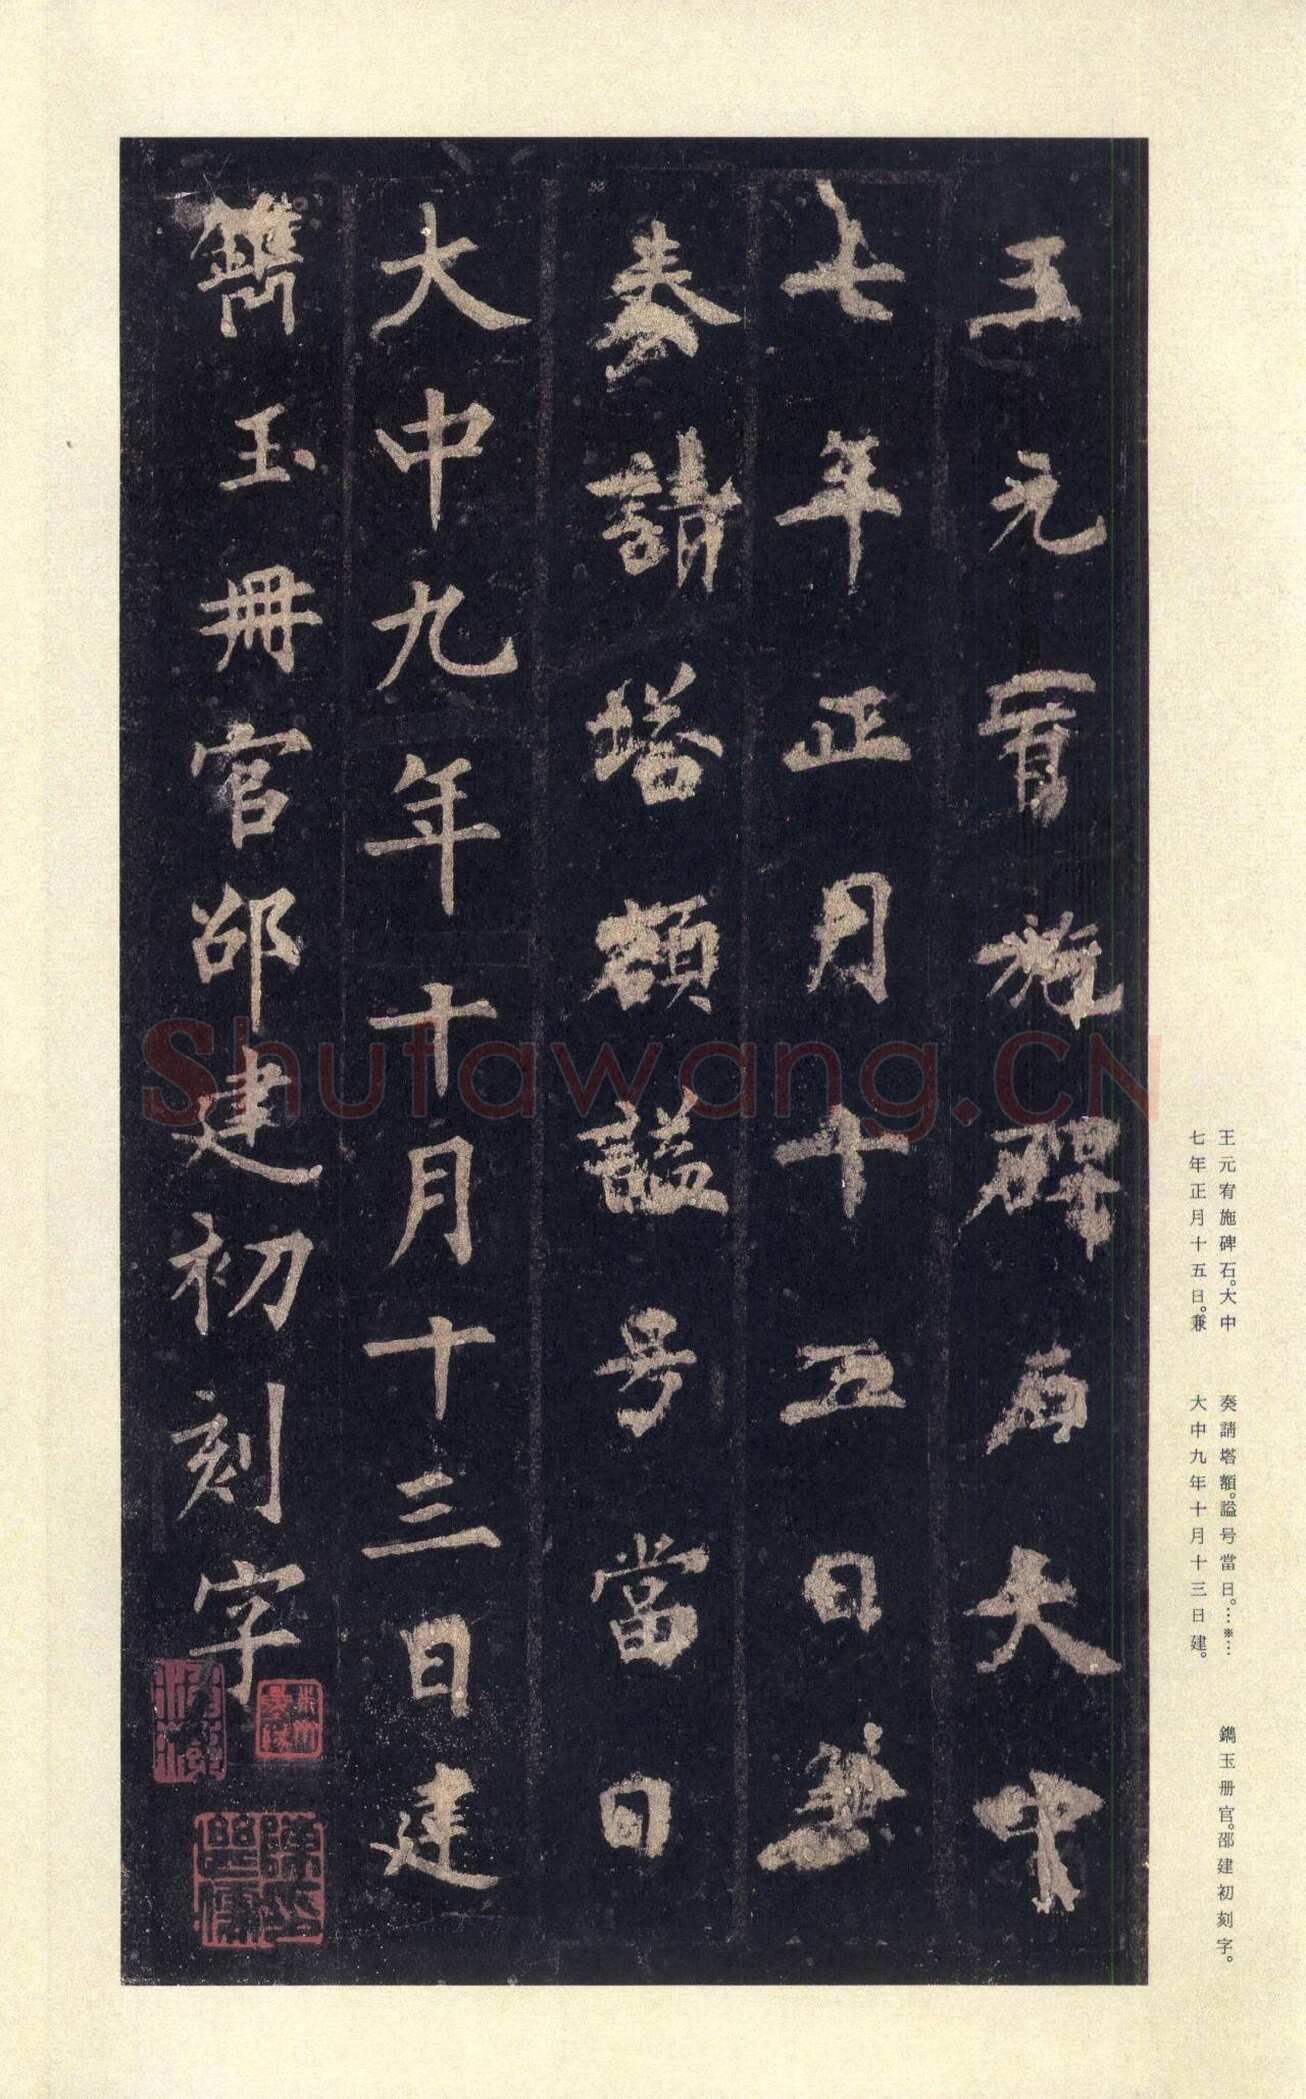 王元宥施碑石大中
七年正月十五日兼
奏請塔額謚号當日
大中九年十月十三日建
鐫玉冊官邵建初刻字
Shufawang.CN
王元宥施碑石。大中
七年正月十五日。兼
奏請塔額。謚号當日。…※…
大中九年十月十三日建。
鐫玉册官。邵建初刻字。